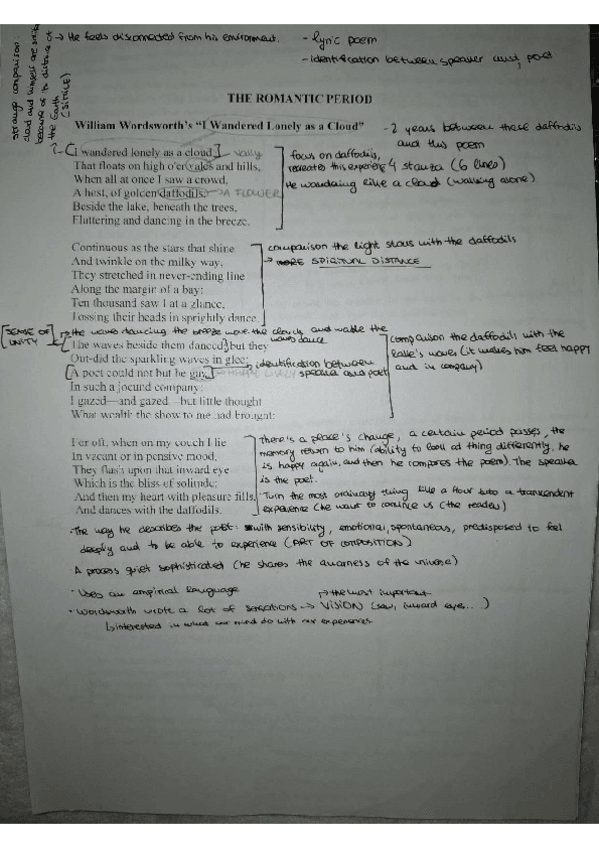 strange comparison:
cloud and himself are similar
because of its distance of
the Earth
(SIMILE)
→ He feels disconnected from his environment.
- lyric poem
- identification between speaker and poet
THE ROMANTIC PERIOD
William Wordsworth's "I Wandered Lonely as a Cloud"
- 2 years between these daffodils
and this poem
I wandered lonely as a cloud
That floats on high o'er vales and hills,
When all at once I saw a crowd,
A host, of golden daffodils;
Beside the lake, beneath the trees,
Fluttering and dancing in the breeze.
→ A FLOWER
focus on daffodils,
recreates this experience
4 stanza (6 lines)
He wandering like a cloud (walking alone)
Continuous as the stars that shine
And twinkle on the milky way,
They stretched in never-ending line
Along the margin of a bay:
Ten thousand saw I at a glance,
Tossing their heads in sprightly dance.
comparison the light stars with the daffodils
→ MORE SPIRITUAL DISTANCE
[SENSE OF
UNITY]
→ the waves dancing, the breeze move the clouds and the
waves dance
The waves beside them danced; but they
Out-did the sparkling waves in glee:
A poet could not but be gay,
In such a jocund company:
I gazed—and gazed—but little thought
What wealth the show to me had brought:
identification between
speaker and poet
comparison the daffodils with the
lake's waves (it makes him feel happy
and in company)
For oft, when on my couch I lie
In vacant or in pensive mood,
They flash upon that inward eye
Which is the bliss of solitude;
And then my heart with pleasure fills,
And dances with the daffodils.
There's a place's change, a certain period passes, the
memory return to him (ability to look at thing differently, he
is happy again, and then he compares the poem). The speaker
is the poet.
Turn the most ordinary thing like a flour into a trancendent
experience (he want to convince us (the reader)
· The way he describes the poet: with sensibility, emotional, spontaneous, predisposed to feel
deeply and to be able to experience (ART OF COMPOSITION)
A process quiet sophisticated (he shares the awarness of the universe)
· Uses an empirical language
→ the most important
· Wordsworth wrote a lot of sensations → VISION (saw, inward eye...)
↳ interested in what our mind do with our experiences